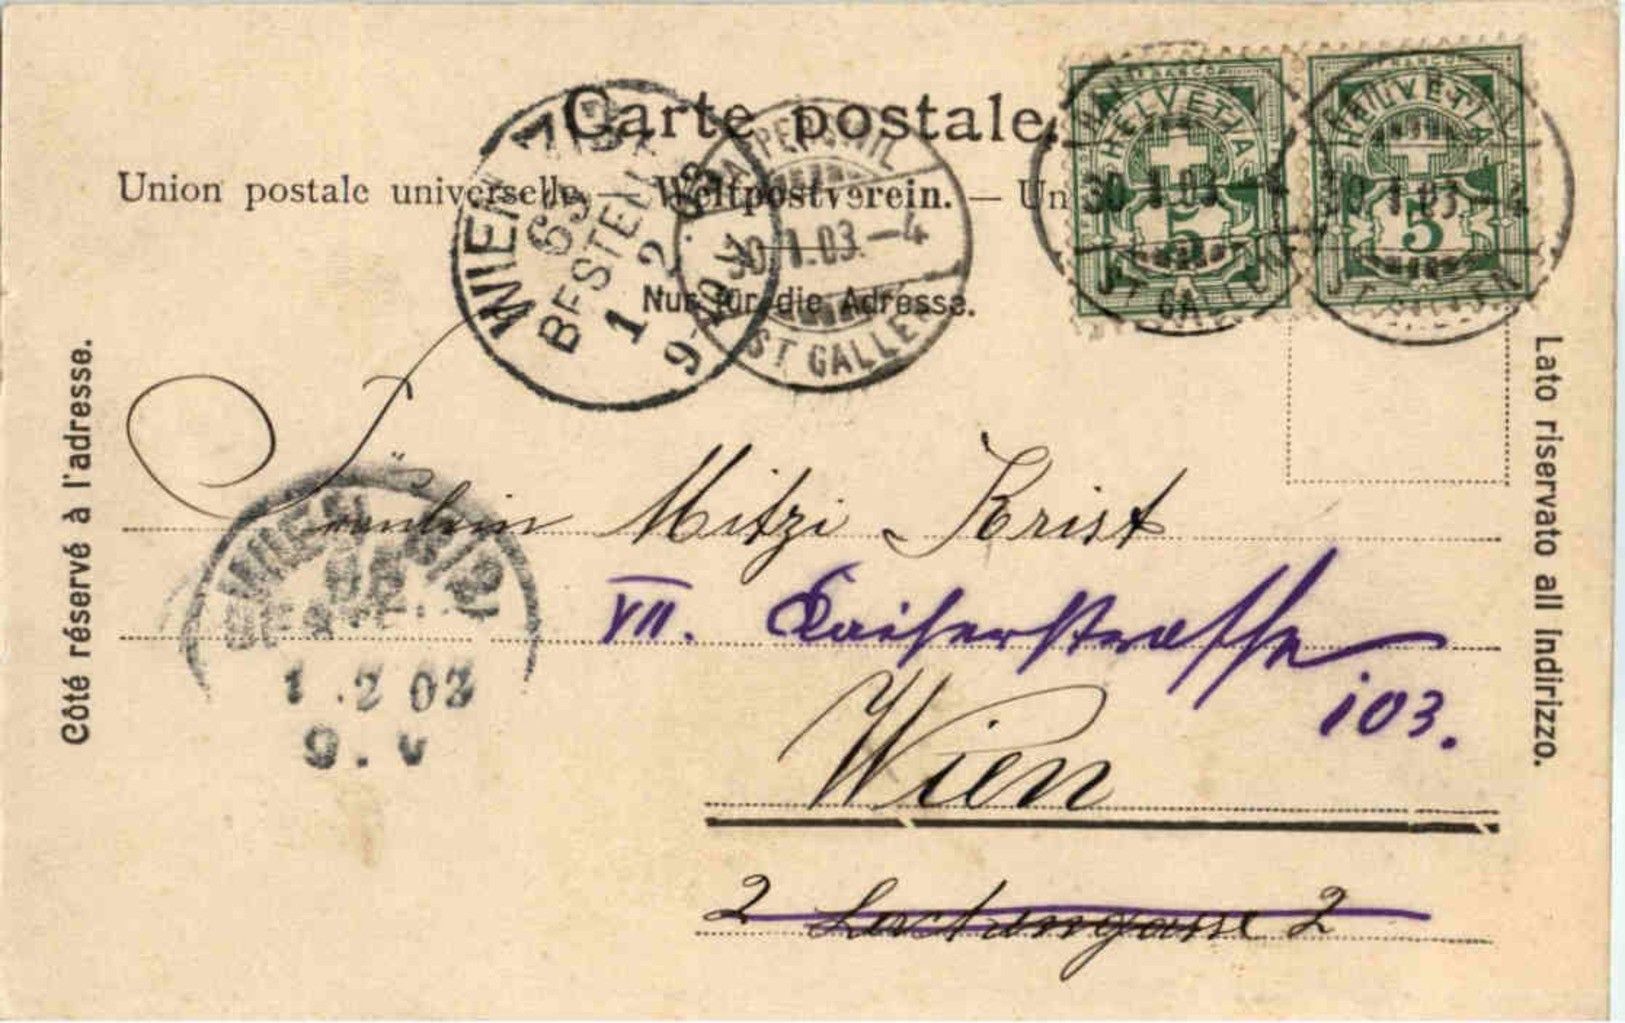 Carte postale.
Union postale universelle. — Weltpostverein. — Un
Nur für die Adresse.
Côté réservé à l'adresse.
Lato riservato all indirizzo.
HELVETIA
5
HELVETIA
5
30 1.03.-4
ST GALLEN
30 1.03.-4
ST GALLEN
RAPPERSWIL
30 1.03.-4
ST GALLEN
WIEN
BESTELLT
1 2 03
9-10V
WIEN
1.2 03
9.V
Fräulein Mitzi Krist
VII. Kaiserstrasse
103.
Wien
2 2